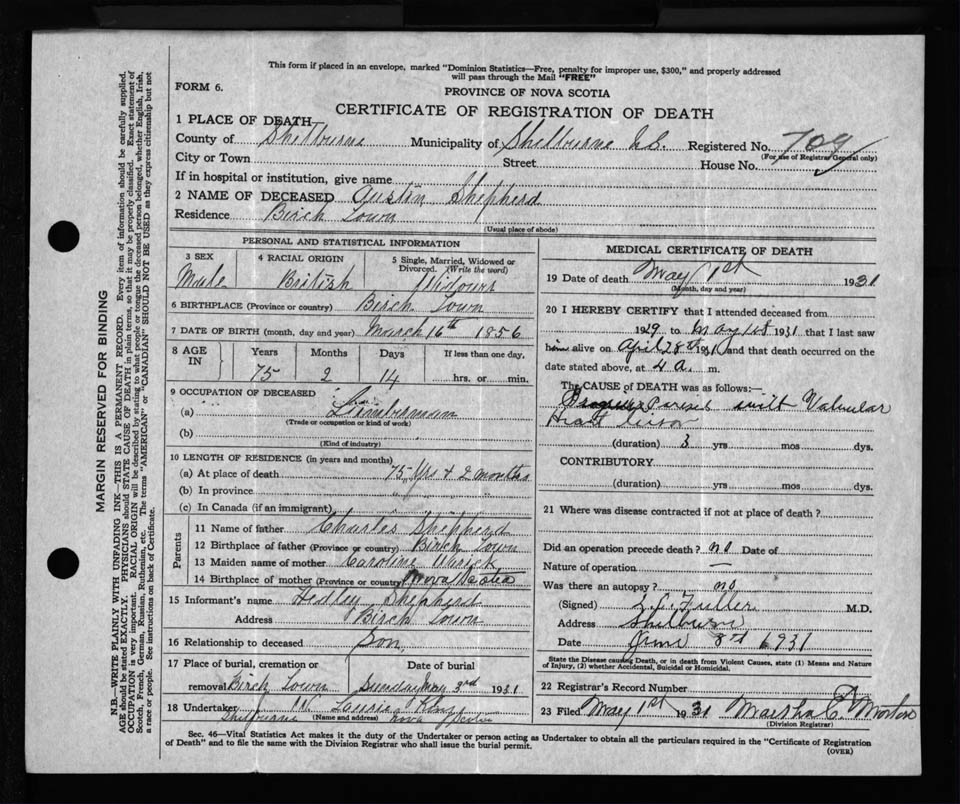 This form if placed in an envelope, marked "Dominion Statistics—Free, penalty for improper use, $300," and properly addressed
will pass through the Mail "FREE"
FORM 6.
PROVINCE OF NOVA SCOTIA
CERTIFICATE OF REGISTRATION OF DEATH
1 PLACE OF DEATH
County of Shelburne Municipality of Shelburne Registered No. 709
(For use of Registrar General only)
City or Town Street House No.
If in hospital or institution, give name
2 NAME OF DECEASED Austin Shepherd
Residence Birch Town
(Usual place of abode)
PERSONAL AND STATISTICAL INFORMATION
3 SEX 4 RACIAL ORIGIN 5 Single, Married, Widowed or
Divorced. (Write the word)
Male British
6 BIRTHPLACE (Province or country) Birch Town
7 DATE OF BIRTH (month, day and year) March 16th 1856
8 AGE IN Years Months Days If less than one day,
75 2 14 hrs. or min.
9 OCCUPATION OF DECEASED
(a) Lumberman
(Trade or occupation or kind of work)
(b)
(Kind of industry)
10 LENGTH OF RESIDENCE (in years and months)
(a) At place of death 75 Yrs + 2 months
(b) In province
(c) In Canada (if an immigrant)
Parents
11 Name of father Charles Shepherd
12 Birthplace of father (Province or country) Birch Town
13 Maiden name of mother Caroline
14 Birthplace of mother (Province or country) Nova Scotia
15 Informant's name Hedley Shepherd
Address Birch Town
16 Relationship to deceased Son
17 Place of burial, cremation or Date of burial
removal Birch Town Sunday May 3rd 1931
18 Undertaker Laurie King
Shelburne (Name and address) Nova Scotia
MEDICAL CERTIFICATE OF DEATH
19 Date of death May 1st 1931
(Month, day and year)
20 I HEREBY CERTIFY that I attended deceased from
1929 to May 1st 1931 that I last saw
him alive on April 28th 1931 and that death occurred on the
date stated above, at 4 a. m.
The CAUSE OF DEATH was as follows:—
Paresis with Valvular
Heart
(duration) 3 yrs mos dys.
CONTRIBUTORY
(duration) yrs mos dys.
21 Where was disease contracted if not at place of death?
Did an operation precede death? no Date of
Nature of operation —
Was there an autopsy? no
(Signed) L. C. Fuller M.D.
Address Shelburne
Date June 8th 1931
State the Disease causing Death, or in death from Violent Causes, state (1) Means and Nature
of Injury, (2) whether Accidental, Suicidal or Homicidal.
22 Registrar's Record Number
23 Filed May 1st 1931 Martha C. Morton
(Division Registrar)
Sec. 46—Vital Statistics Act makes it the duty of the Undertaker or person acting as Undertaker to obtain all the particulars required in the "Certificate of Registration
of Death" and to file the same with the Division Registrar who shall issue the burial permit.
(OVER)
MARGIN RESERVED FOR BINDING
N.B.—WRITE PLAINLY WITH UNFADING INK—THIS IS A PERMANENT RECORD. Every item of information should be carefully supplied.
AGE should be stated EXACTLY. PHYSICIANS should STATE CAUSE OF DEATH in plain terms, so that it may be properly classified. Exact statement of
OCCUPATION is very important. RACIAL ORIGIN will be described by stating to what people or tongue the deceased person belonged, whether English, Irish,
Scotch, French, German, Russian, Ruthenian, etc. The terms "AMERICAN" or "CANADIAN" SHOULD NOT BE USED as they express citizenship but not
a race or people. See instructions on back of Certificate.